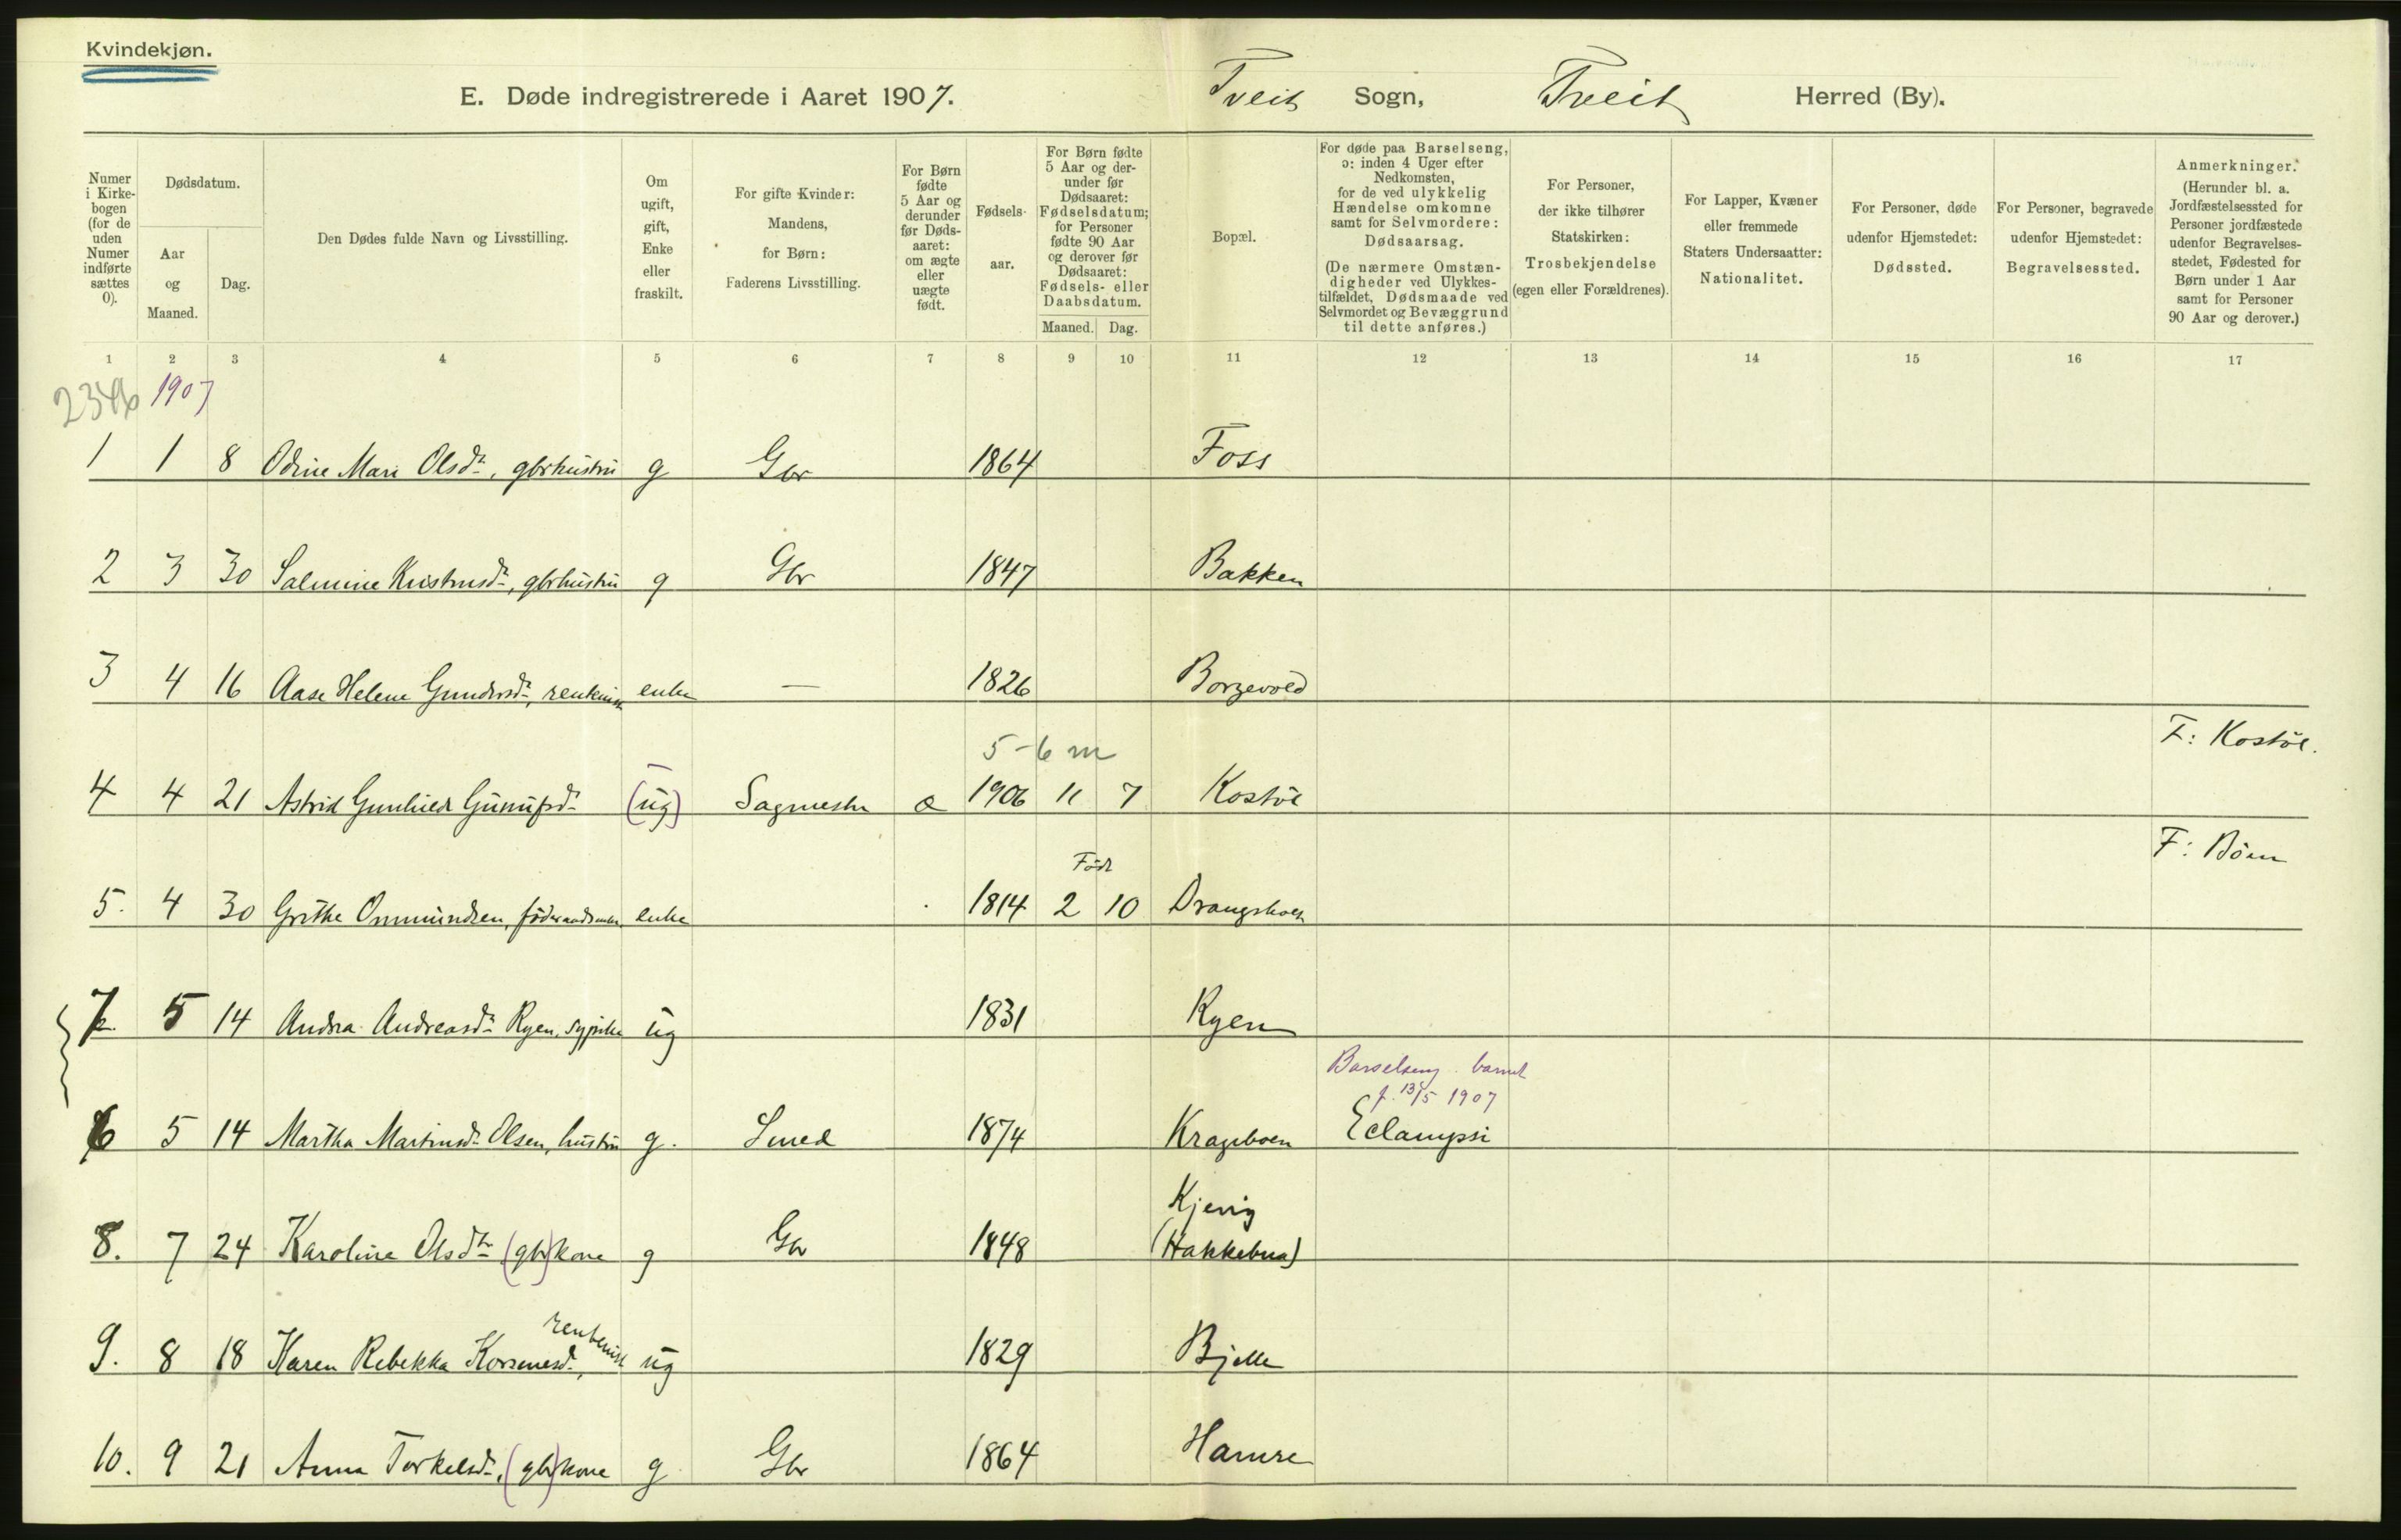 Kvindekjøn.
E. Døde indregistrerede i Aaret 1907. Tveit Sogn, Tveit Herred (By).
Numer i Kirke-bogen (for de uden Numer indførte sættes 0).
Dødsdatum.
Aar og Maaned.
Dag.
Den Dødes fulde Navn og Livsstilling.
Om ugift, gift, Enke eller fraskilt.
For gifte Kvinder: Mandens, for Børn: Faderens Livsstilling.
For Børn fødte 5 Aar og derunder før Døds-aaret: om ægte eller uægte født.
Fødsels-aar.
For Børn fødte 5 Aar og der-under før Dødsaaret: Fødselsdatum; for Personer fødte 90 Aar og derover før Dødsaaret: Fødsels- eller Daabsdatum.
Maaned. Dag.
Bopæl.
For døde paa Barselseng, ɔ: inden 4 Uger efter Nedkomsten, for de ved ulykkelig Hændelse omkomne samt for Selvmordere: Dødsaarsag.
(De nærmere Omstæn-digheder ved Ulykkes-tilfældet, Dødsmaade ved Selvmordet og Bevæggrund til dette anføres.)
For Personer, der ikke tilhører Statskirken: Trosbekjendelse (egen eller Forældrenes).
For Lapper, Kvæner eller fremmede Staters Undersaatter: Nationalitet.
For Personer, døde udenfor Hjemstedet: Dødssted.
For Personer, begravede udenfor Hjemstedet: Begravelsessted.
Anmerkninger.
(Herunder bl. a. Jordfæstelsessted for Personer jordfæstede udenfor Begravelses-stedet, Fødested for Børn under 1 Aar samt for Personer 90 Aar og derover.)
1 2 3 4 5 6 7 8 9 10 11 12 13 14 15 16 17
1907
1 1 8 Odine Marie Olsdr, gbrhustru g Gbr 1864 Foss
2 3 30 Salmine Kristensdr, gbrhustru g Gbr 1847 Bakken
3 4 16 Aase Helene Gundersdr, rentenist enke — 1826 Borgevold
5-6 m F: Kostøl.
4 4 21 Astrid Gunhild (ug) Sagmester æ 1906 11 7 Kostøl
Født F: Böen
5. 4 30 Grethe Ommundsen, føderaadsenke enke 1814 2 10 Drangsholt
7 5 14 Andrea Andreasdr Ryen, sypike ug 1831 Ryen
Barselseng. barnet
f. 13/5 1907
6 5 14 Martha Martinsdr Olsen, hustru g. Smed 1874 Krageboen Eclampsi
Kjevig
8. 7 24 Karoline Olsdtr (gbr)kone g Gbr 1848 (Hakkebua)
rentenist
9. 8 18 Karen Rebekka ug 1829 Bjelle
10. 9 21 Anna Torkelsdr, (gbr)kone g Gbr 1864 Hamre